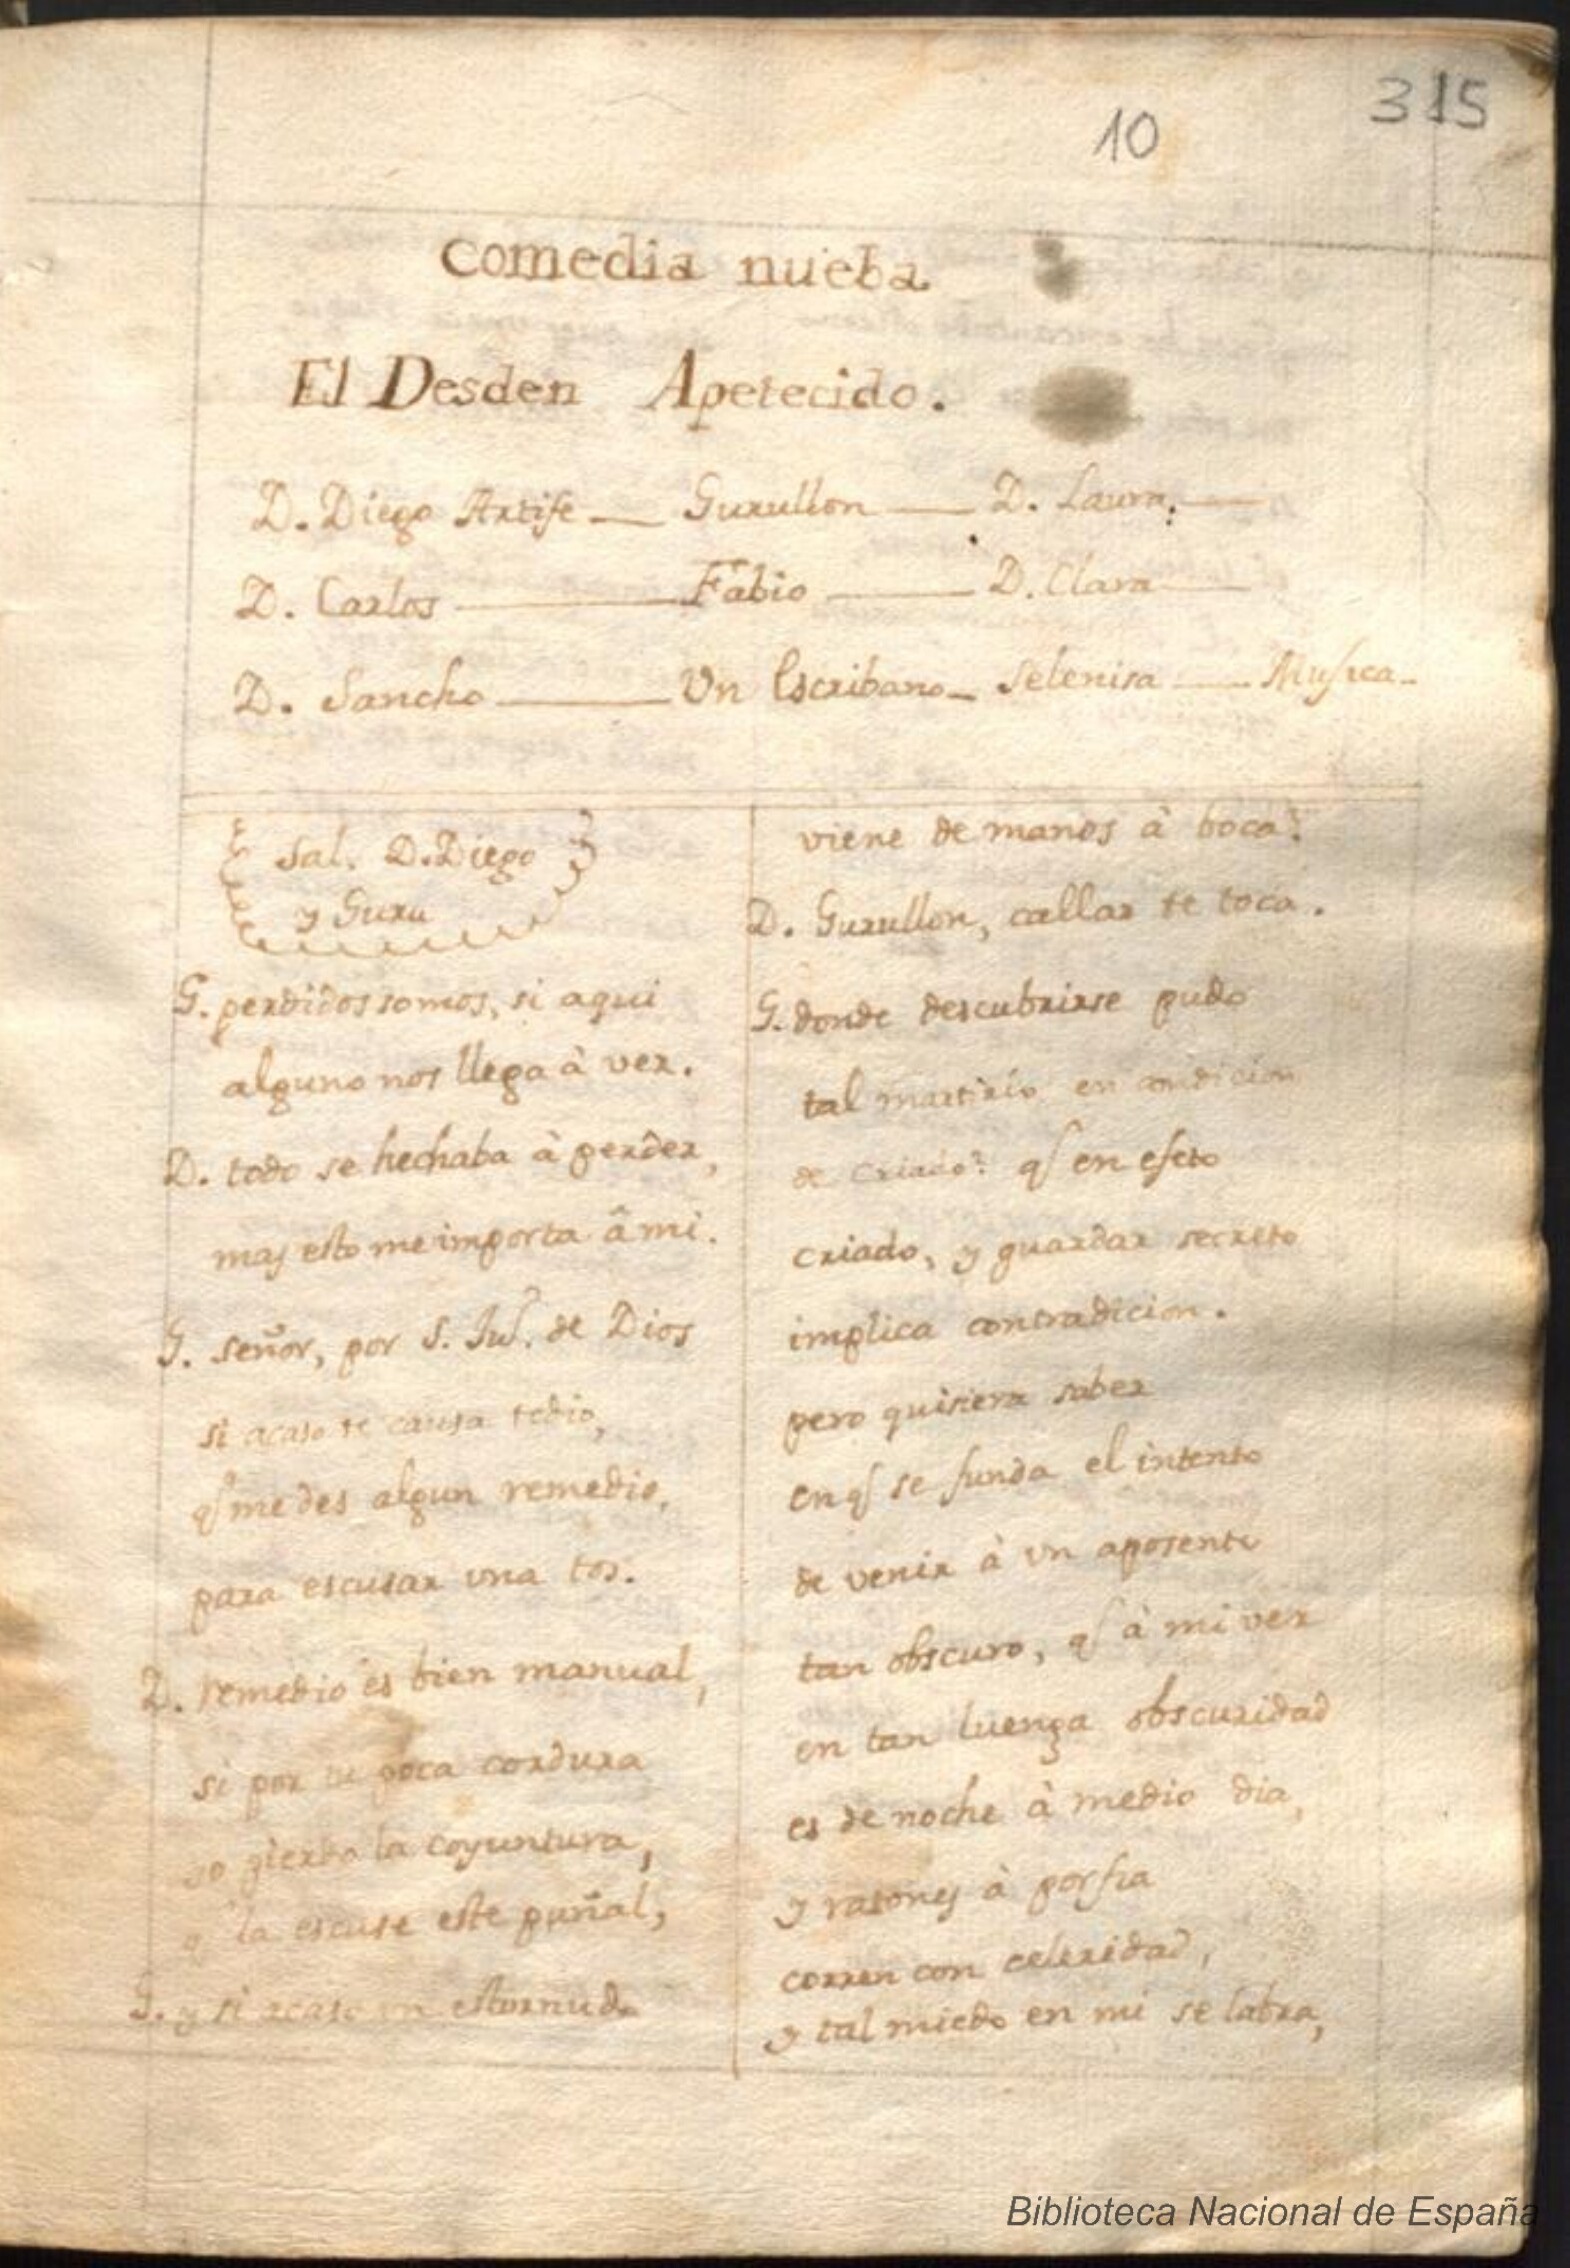 315
10
Comedia nueba.
El Desden Apetecido.
D. Diego Artife — Gurullon — D. Laura. —
D. Carlos — Fabio — D. Clara —
D. Sancho — Vn Escribano — Selenisa — Musica —
Sal. D. Diego
y Guru
G. perdidos somos, si aqui
alguno nos llega à ver.
D. todo se hechaba à perder,
mas esto me importa â mi.
G. señor, por S. Juº. de Dios
si acaso te causa tedio,
q̃ me des algun remedio,
para escusar vna tos.
D. remedio es bien manual,
si por tu poca cordura
yo pierdo la coyuntura,
q̃ la escuse este puñal,
G. y si acaso un estornudo
viene de manos à boca?
D. Gurullon, callar te toca.
G. donde descubrirse pudo
tal martirio en condicion
de criado? q̃ en efeto
criado, y guardar secreto
implica contradicion.
pero quisiera saber
en q̃ se funda el intento
de venir à vn aposento
tan obscuro, q̃ à mi ver
en tan luenga obscuridad
es de noche à medio dia,
y ratones à porfia
corren con celeridad,
y tal miedo en mi se labra,
Biblioteca Nacional de España